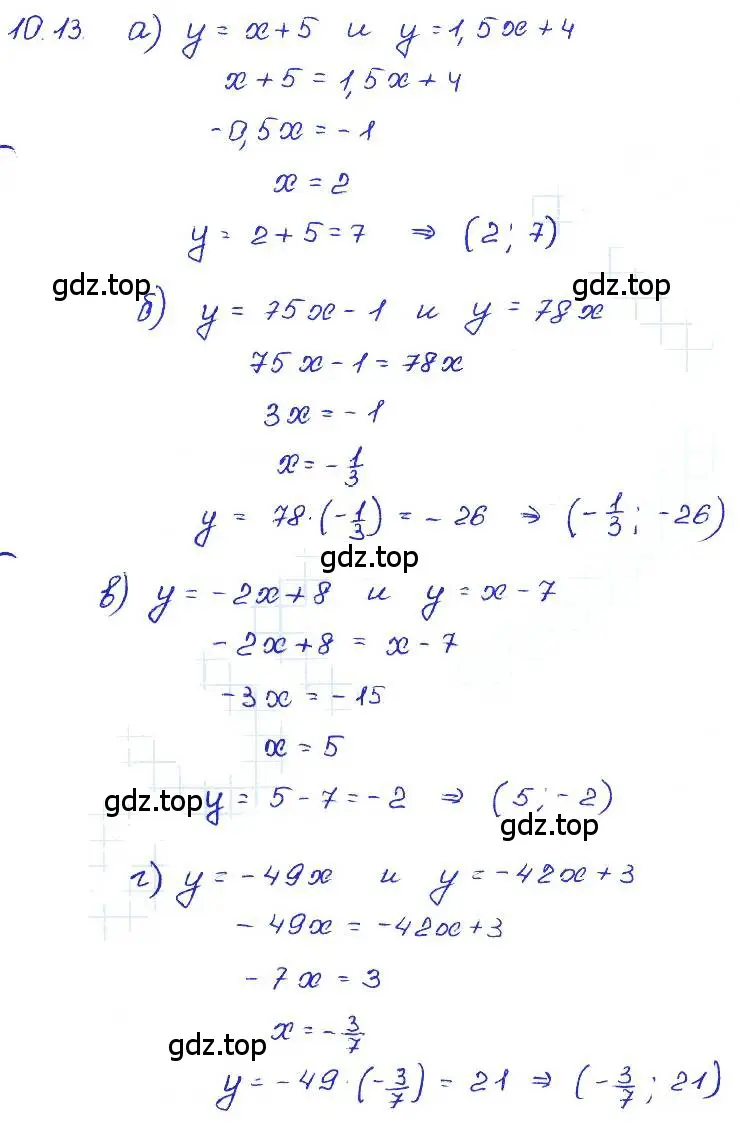 10.13. а) y = x + 5 и y = 1,5x + 4
x + 5 = 1,5x + 4
-0,5x = -1
x = 2
y = 2 + 5 = 7 ⇒ (2; 7)
gdz.top gdz.top
б) y = 75x - 1 и y = 78x
75x - 1 = 78x
3x = -1
x = -1/3
y = 78·(-1/3) = -26 ⇒ (-1/3; -26)
gdz.top
в) y = -2x + 8 и y = x - 7
-2x + 8 = x - 7
-3x = -15
x = 5
gdz.top y = 5 - 7 = -2 ⇒ (5; -2)
gdz.top
г) y = -49x и y = -42x + 3
-49x = -42x + 3
-7x = 3
x = -3/7
gdz.top
y = -49·(-3/7) = 21 ⇒ (-3/7; 21)